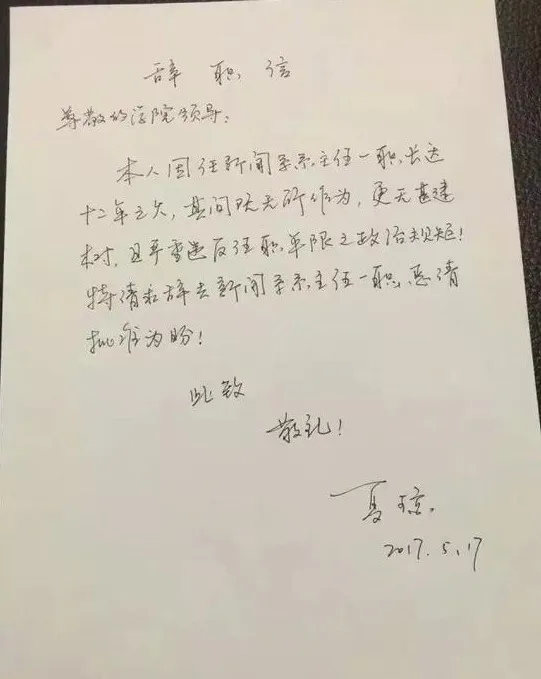 辞职信
尊敬的学院领导：
本人因任新闻系系主任一职长达
十二年之久，其间既无所作为，更无甚建
树，且严重违反任职年限之政治规矩！
特请求辞去新闻系系主任一职，恳请
批准为盼！
此致
敬礼！
夏琼
2017.5.17